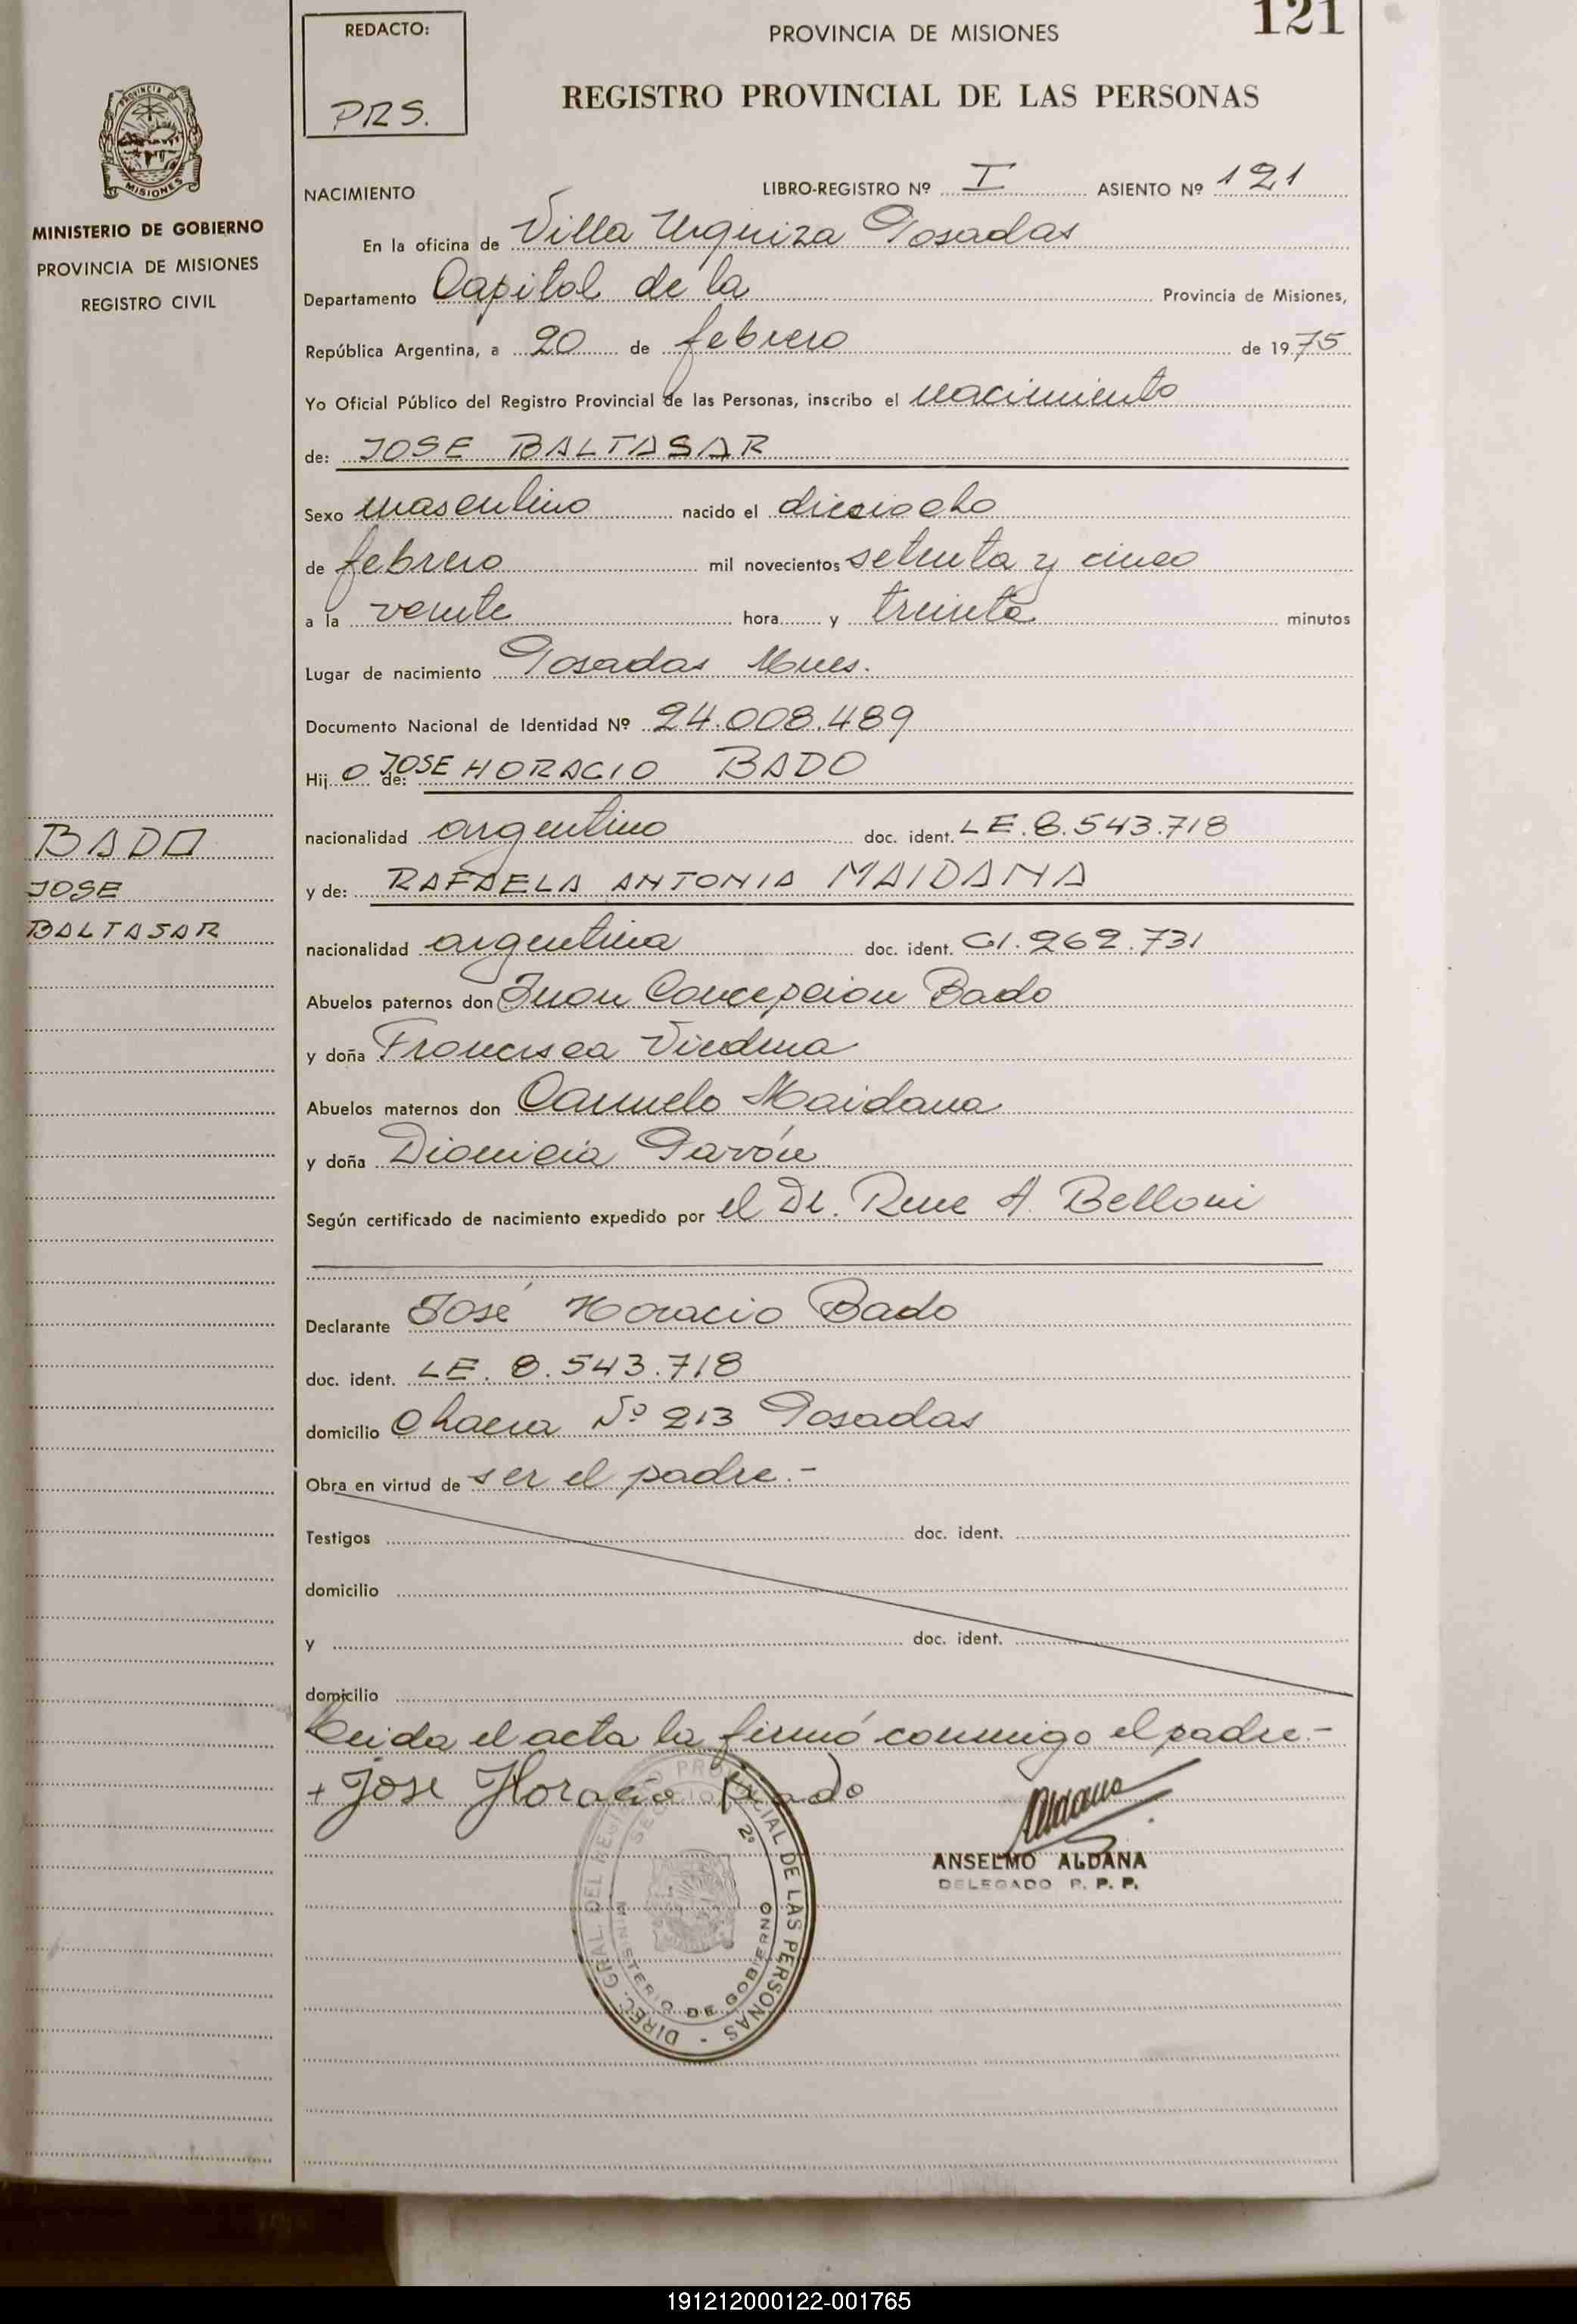 REDACTO:
PRS.
PROVINCIA DE MISIONES
121
REGISTRO PROVINCIAL DE LAS PERSONAS
PROVINCIA DE
MISIONES
MINISTERIO DE GOBIERNO
PROVINCIA DE MISIONES
REGISTRO CIVIL
NACIMIENTO LIBRO-REGISTRO Nº I ASIENTO Nº 121
En la oficina de Villa Urquiza Posadas
Departamento Capital de la Provincia de Misiones,
República Argentina, a 20 de febrero de 1975
Yo Oficial Público del Registro Provincial de las Personas, inscribo el nacimiento
de: JOSE BALTASAR
Sexo masculino nacido el dieciocho
de febrero mil novecientos setenta y cinco
a la veinte hora y treinta minutos
Lugar de nacimiento Posadas Mnes.
Documento Nacional de Identidad Nº 24.008.489
Hijo de: JOSE HORACIO BADO
BADO
JOSE
BALTASAR
nacionalidad argentino doc. ident. LE.8.543.718
y de: RAFAELA ANTONIA MAIDANA
nacionalidad argentina doc. ident. CI.262.731
Abuelos paternos don Juan Concepcion Bado
y doña Francisca Viedma
Abuelos maternos don Carmelo Maidana
y doña Dionicia Pavón
Según certificado de nacimiento expedido por el Dr. Rene A. Belloni
Declarante José Horacio Bado
doc. ident. LE. 8.543.718
domicilio Chacra Nº 213 Posadas
Obra en virtud de ser el padre.-
Testigos doc. ident.
domicilio
y doc. ident.
domicilio
Leida el acta la firmó conmigo el padre.-
+ Jose Horacio Bado
Aldana
ANSELMO ALDANA
DELEGADO R. P. P.
DIREC. GRAL. DEL REGISTRO PROVINCIAL DE LAS PERSONAS -
SECCION 2º
MINISTERIO DE GOBIERNO
191212000122-001765